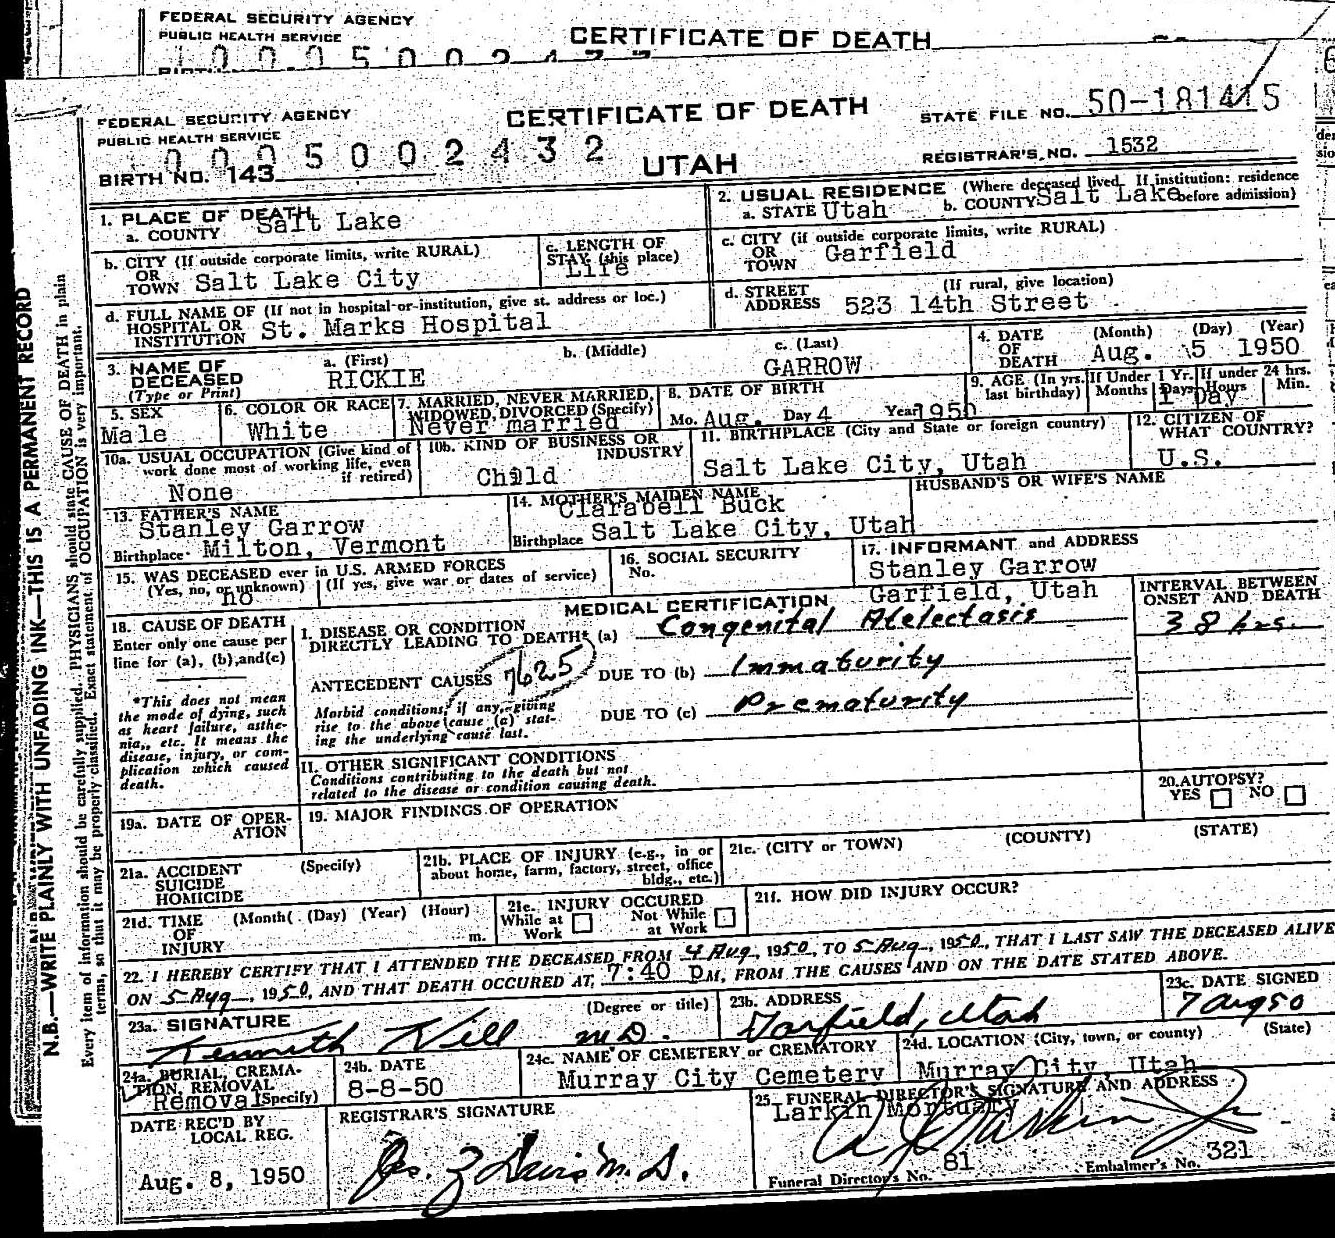 FEDERAL SECURITY AGENCY
PUBLIC HEALTH SERVICE
CERTIFICATE OF DEATH
FEDERAL SECURITY AGENCY
PUBLIC HEALTH SERVICE
CERTIFICATE OF DEATH
STATE FILE NO. 50-181415
0005002432
BIRTH NO. 143
UTAH
REGISTRAR'S NO. 1532
1. PLACE OF DEATH
a. COUNTY Salt Lake
2. USUAL RESIDENCE (Where deceased lived. If institution: residence before admission)
a. STATE Utah b. COUNTY Salt Lake
b. CITY (If outside corporate limits, write RURAL)
OR TOWN Salt Lake City
c. LENGTH OF STAY (this place)
Life
c. CITY (if outside corporate limits, write RURAL)
OR TOWN Garfield
d. FULL NAME OF (If not in hospital or institution, give st. address or loc.)
HOSPITAL OR INSTITUTION St. Marks Hospital
d. STREET ADDRESS (If rural, give location)
523 14th Street
3. NAME OF DECEASED
(Type or Print)
a. (First) b. (Middle) c. (Last)
RICKIE GARROW
4. DATE OF DEATH (Month) (Day) (Year)
Aug. 5 1950
5. SEX
Male
6. COLOR OR RACE
White
7. MARRIED, NEVER MARRIED, WIDOWED, DIVORCED (Specify)
Never married
8. DATE OF BIRTH
Mo. Aug. Day 4 Year 1950
9. AGE (In yrs. last birthday) If Under 1 Yr. Months Days If under 24 hrs. Hours Min.
1 Day
10a. USUAL OCCUPATION (Give kind of work done most of working life, even if retired)
None
10b. KIND OF BUSINESS OR INDUSTRY
Child
11. BIRTHPLACE (City and State or foreign country)
Salt Lake City, Utah
12. CITIZEN OF WHAT COUNTRY?
U.S.
13. FATHER'S NAME
Stanley Garrow
Birthplace Milton, Vermont
14. MOTHER'S MAIDEN NAME
Clarabell Buck
Birthplace Salt Lake City, Utah
HUSBAND'S OR WIFE'S NAME
15. WAS DECEASED ever in U.S. ARMED FORCES
(Yes, no, or unknown) (If yes, give war or dates of service)
no
16. SOCIAL SECURITY No.
17. INFORMANT and ADDRESS
Stanley Garrow
Garfield, Utah
MEDICAL CERTIFICATION
INTERVAL BETWEEN ONSET AND DEATH
18. CAUSE OF DEATH
Enter only one cause per line for (a), (b), and (c)
I. DISEASE OR CONDITION DIRECTLY LEADING TO DEATH* (a) Congenital Atelectasis
38 hrs.
ANTECEDENT CAUSES 7625
DUE TO (b) Immaturity
Morbid conditions, if any, giving rise to the above cause (a) stating the underlying cause last.
DUE TO (c) Prematurity
*This does not mean the mode of dying, such as heart failure, asthenia, etc. It means the disease, injury, or complication which caused death.
II. OTHER SIGNIFICANT CONDITIONS
Conditions contributing to the death but not related to the disease or condition causing death.
20. AUTOPSY?
YES NO
19a. DATE OF OPERATION
19. MAJOR FINDINGS OF OPERATION
21a. ACCIDENT SUICIDE HOMICIDE (Specify)
21b. PLACE OF INJURY (e.g., in or about home, farm, factory, street, office bldg., etc.)
21c. (CITY or TOWN) (COUNTY) (STATE)
21d. TIME OF INJURY (Month) (Day) (Year) (Hour) m.
21e. INJURY OCCURED
While at Work Not While at Work
21f. HOW DID INJURY OCCUR?
22. I HEREBY CERTIFY THAT I ATTENDED THE DECEASED FROM 4 Aug, 1950, TO 5 Aug, 1950, THAT I LAST SAW THE DECEASED ALIVE
ON 5 Aug, 1950, AND THAT DEATH OCCURED AT 7:40 pM, FROM THE CAUSES AND ON THE DATE STATED ABOVE.
23a. SIGNATURE (Degree or title)
Kenneth Nill M.D.
23b. ADDRESS
Garfield, Utah
23c. DATE SIGNED
7 Aug 50
24a. BURIAL, CREMATION, REMOVAL (Specify)
Removal
24b. DATE
8-8-50
24c. NAME OF CEMETERY or CREMATORY
Murray City Cemetery
24d. LOCATION (City, town, or county) (State)
Murray City, Utah
DATE REC'D BY LOCAL REG.
Aug. 8, 1950
REGISTRAR'S SIGNATURE
25. FUNERAL DIRECTOR'S SIGNATURE AND ADDRESS
Larkin Mortuary
Funeral Director's No. 81
Embalmer's No. 321
N.B.—WRITE PLAINLY WITH UNFADING INK—THIS IS A PERMANENT RECORD
Every item of information should be carefully supplied. PHYSICIANS should state CAUSE OF DEATH in plain
terms, so that it may be properly classified. Exact statement of OCCUPATION is very important.